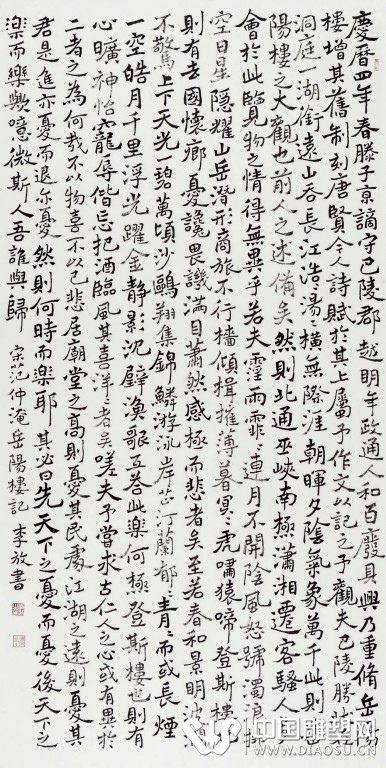 慶曆四年春滕子京謫守巴陵郡越明年政通人和百廢具興乃重脩岳陽
樓增其舊制刻唐賢今人詩賦於其上屬予作文以記之予觀夫巴陵勝狀在
洞庭一湖銜遠山吞長江浩〻湯〻橫無際涯朝暉夕陰氣象萬千此則岳
陽樓之大觀也前人之述備矣然則北通巫峽南極瀟湘遷客騷人多
會於此覽物之情得無異乎若夫霪雨霏〻連月不開陰風怒號濁浪排
空日星隱耀山岳潛形商旅不行檣傾楫摧薄暮冥〻虎嘯猿啼登斯樓也
則有去國懷鄉憂讒畏譏滿目蕭然感極而悲者矣至若春和景明波瀾
不驚上下天光一碧萬頃沙鷗翔集錦鱗游泳岸芷汀蘭郁〻青〻而或長煙
一空皓月千里浮光躍金靜影沉璧漁歌互答此樂何極登斯樓也則有
心曠神怡寵辱偕忘把酒臨風其喜洋〻者矣嗟夫予嘗求古仁人之心或有異於
二者之為何哉不以物喜不以己悲居廟堂之高則憂其民處江湖之遠則憂其
君是進亦憂而退亦憂然則何時而樂耶其必曰先天下之憂而憂後天下之
樂而樂與噫微斯人吾誰與歸 宋范仲淹岳陽樓記 李放書
中国雕塑网
WWW.DIAOSU.CN